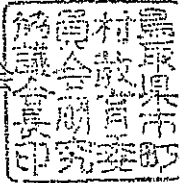 鳥取県市町
村教育委
員会研究
協議会長印